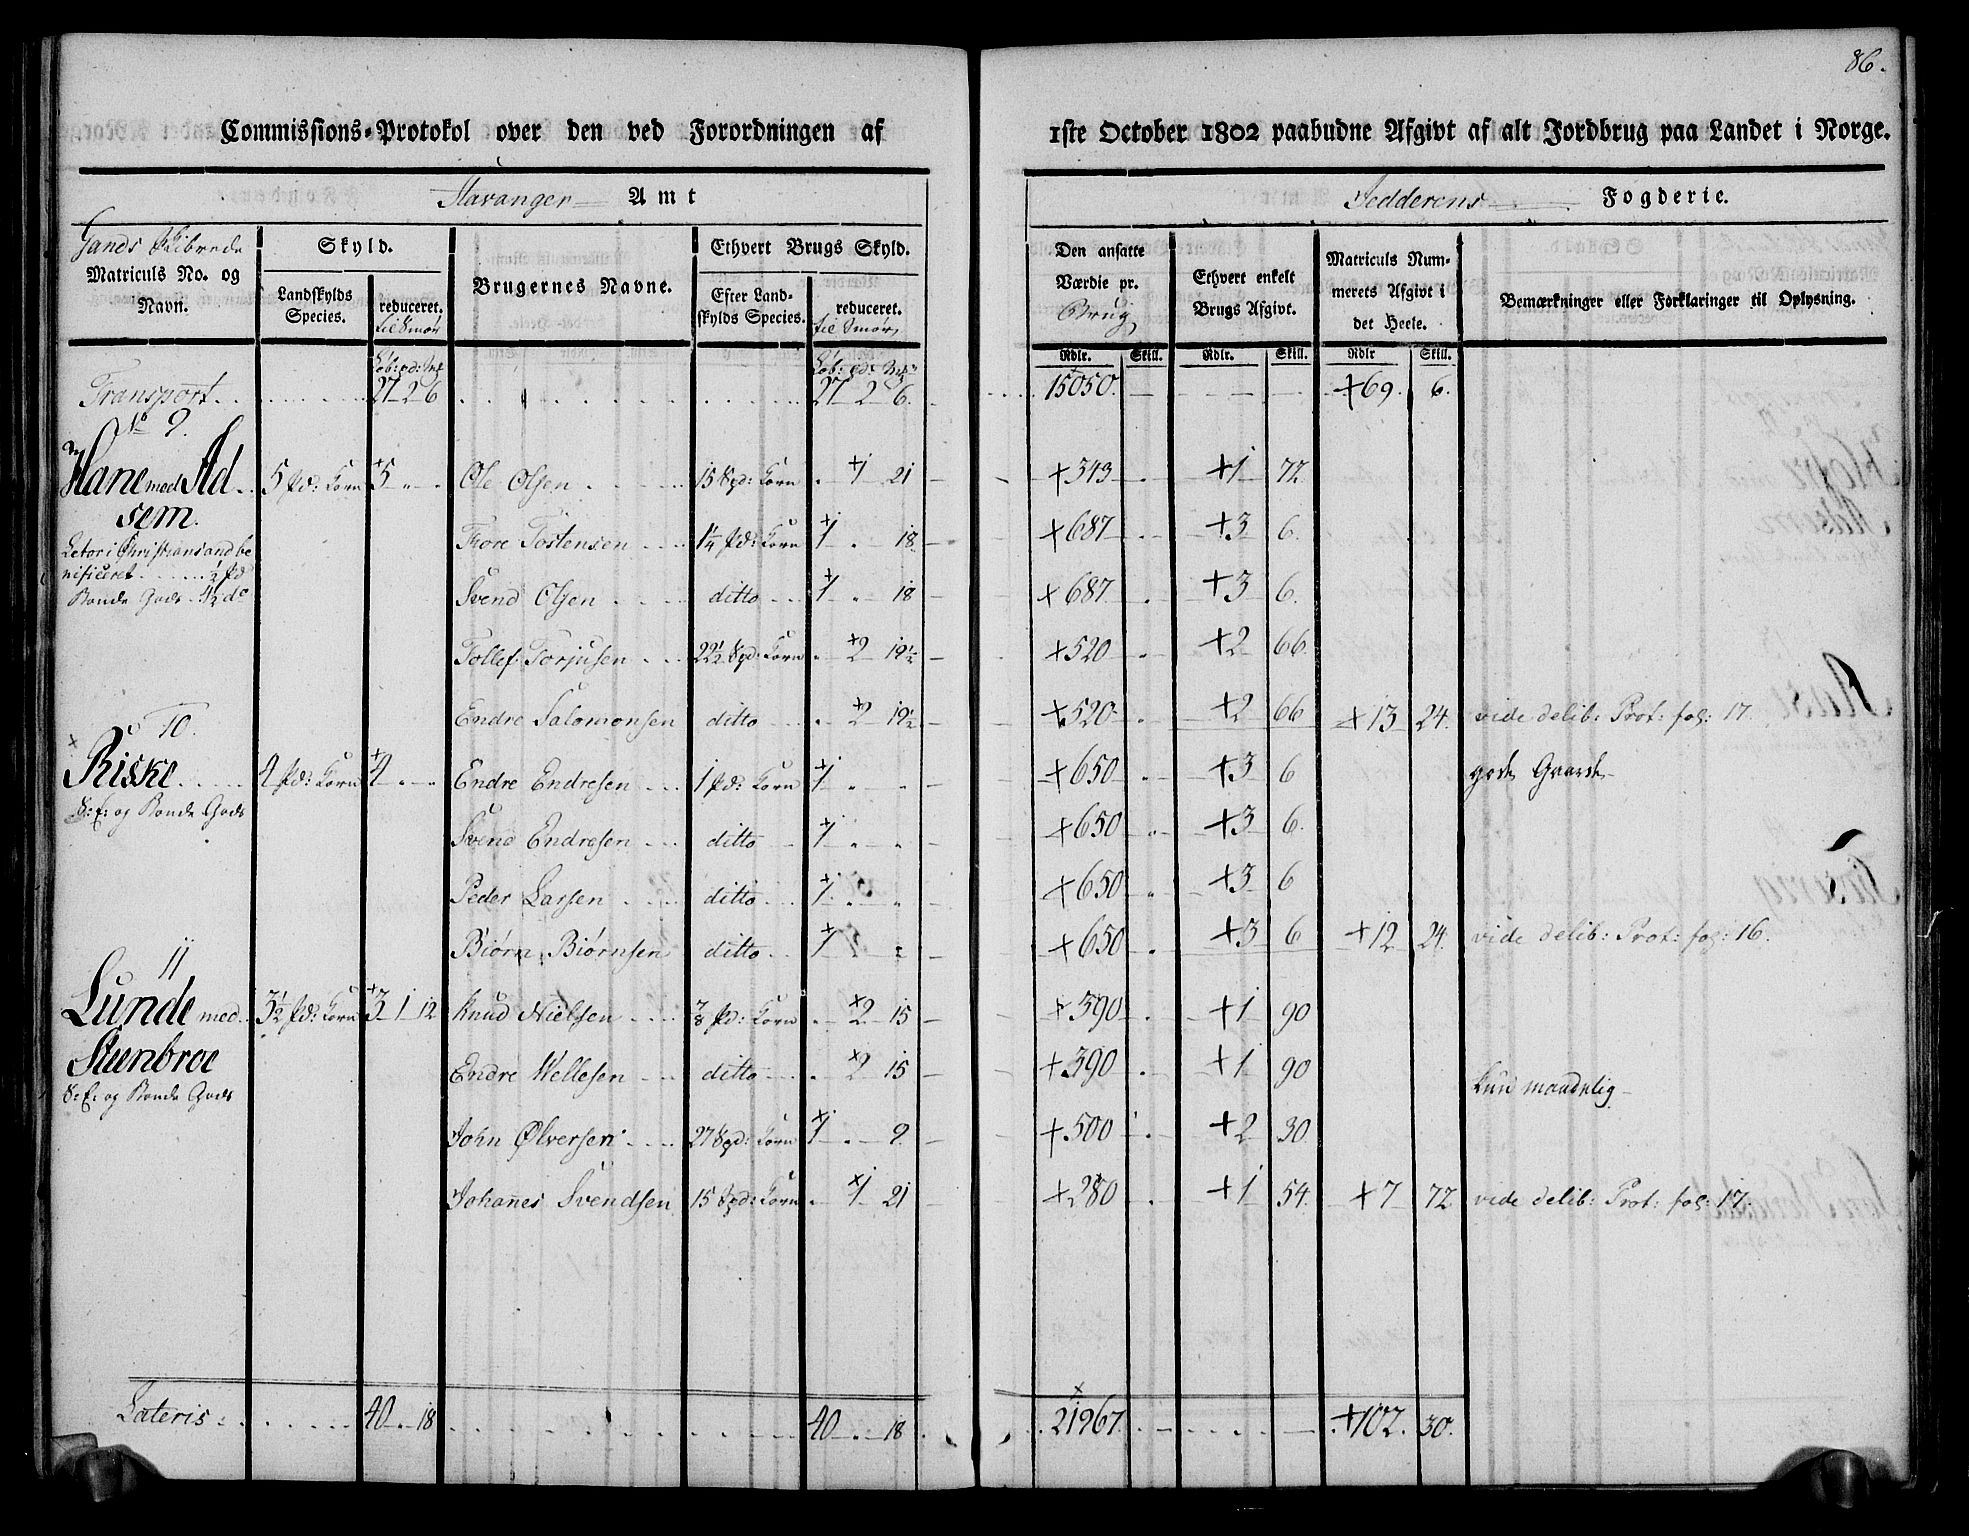 86.
Commissions-Protokol over den ved Forordningen af 1ste October 1802 paabudne Afgivt af alt Jordbrug paa Landet i Norge.
Stavanger Amt Jedderens Fogderie.
Gands Skibrede
Matriculs No. og Navn.
Skyld.
Landskylds Species.
reduceret. til Smør
Brugernes Navne.
Ethvert Brugs Skyld.
Efter Landskylds Species.
reduceret. til Smør
Den ansatte Værdie pr. Brug
Ethvert enkelt Brugs Afgivt.
Matriculs Nummerets Afgivt i det Heele.
Bemærkninger eller Forklaringer til Oplysning.
Rdlr. Skill. Rdlr. Skill. Rdlr Skill.
Transport 27 2 6 27 2 6 15050 +69 6.
No 9.
Hane med Ad 5 pd: Korn +5 Ole Olsen 15 Spd: Korn +1 21 +343 +1 72
sem. Tore Tostensen 1¼ pd: Korn +1 18 +687 +3 6
Lector i Christiansand be
nificeret ½ pd Svend Olsen ditto +1 18 +687 +3 6
Bonde Gods 4½ do
Tollef Torjusen 22½ Spd: Korn +2 19½ +520 +2 66
Endre Salomonsen ditto +2 19½ +520 +2 66 +13 24 vide delib: Prot: fol: 17
10.
Riske 4 pd: Korn +4 Endre Endresen 1 pd: Korn +1 +650 +3 6 gode Gaarde
S: E: og Bonde Gods
Svend Endresen ditto +1 +650 +3 6
Peder Larsen ditto +1 +650 +3 6
Biørn Biørnsen ditto +1 +650 +3 6 +12 24 vide delib: Prot: fol: 16.
11
Lunde med 3½ pd: Korn +3 1 12 Knud Nielsen ⅞ pd: Korn +2 15 +390 +1 90
Steenbroe Endre Wellesen ditto +2 15 +390 +1 90
S: E: og Bonde Gods Kun maadelig
John Ølversen 27 Spd: Korn +1 9 +500 +2 30
Johanes Svendsen 15 Spd: Korn +1 21 +280 +1 54 +7 72 vide delib: Prot: fol: 17.
Lateris 40 18 40 18 21967 +102 30.